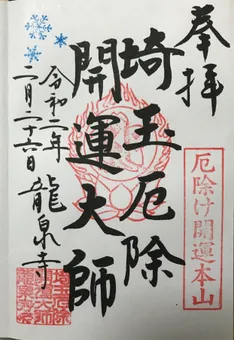 奉拝
厄除け開運本山
埼玉厄除
開運大師
令和二年
二月二十六日
龍泉寺